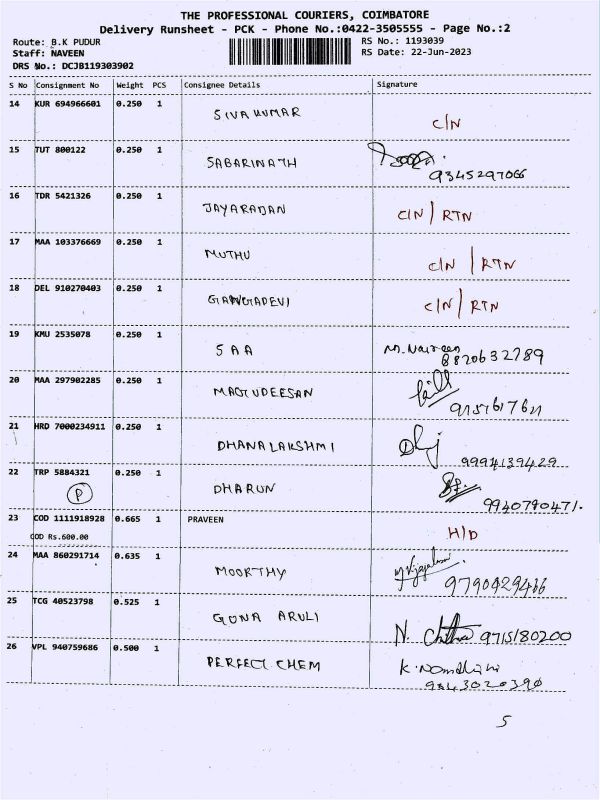 THE PROFESSIONAL COURIERS, COIMBATORE
Delivery Runsheet - PCK - Phone No.:0422-3505555 - Page No.:2
Route: B.K PUDUR RS No.: 1193039
Staff: NAVEEN RS Date: 22-Jun-2023
DRS No.: DCJB119303902
S No Consignment No Weight PCS Consignee Details Signature
14 KUR 694966601 0.250 1 SIVA KUMAR C/N
15 TUT 800122 0.250 1 SABARINATH 9345297066
16 TDR 5421326 0.250 1 JAYARADAN C/N / RTN
17 MAA 103376669 0.250 1 MUTHU C/N / RTN
18 DEL 910270403 0.250 1 GANGADEVI C/N / RTN
19 KMU 2535078 0.250 1 SAA M. Naireen
8820632789
20 MAA 297902285 0.250 1 MAGUDEESAN
21 HRD 7000234911 0.250 1 DHANALAKSHMI 9994139429
22 TRP 5884321 0.250 1 DHARUN
P 9940790471.
23 COD 1111918928 0.665 1 PRAVEEN H/D
COD Rs.600.00
24 MAA 860291714 0.635 1 MOORTHY
9790929466
25 TCG 40523798 0.525 1 GUNA ARULI N. Chitra 9715180200
26 VPL 940759686 0.500 1 PERFECT CHEM K. Nandhini
9843020390
5